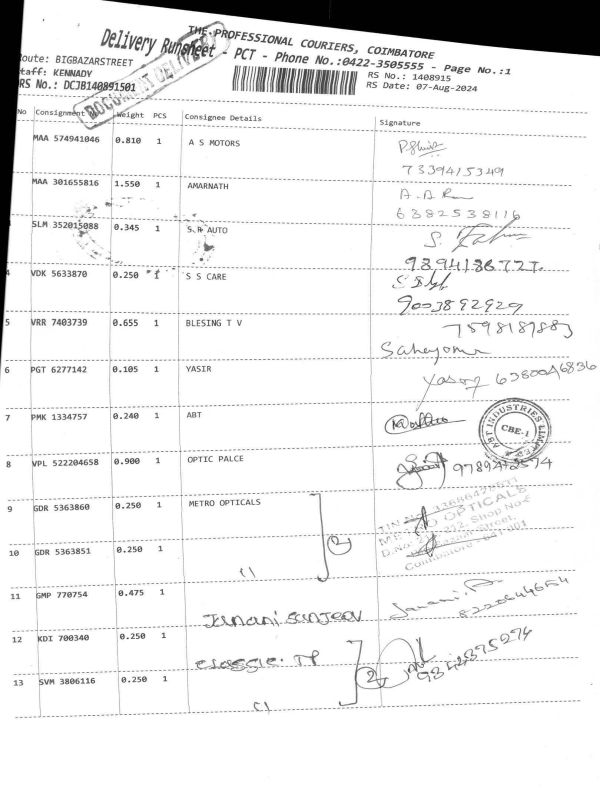 THE PROFESSIONAL COURIERS, COIMBATORE
Delivery Runsheet - PCT - Phone No.:0422-3505555 - Page No.:1
Route: BIGBAZARSTREET
Staff: KENNADY
RS No.: DCJB140891501
RS No.: 1408915
RS Date: 07-Aug-2024
DOCUMENT DELIVERY
No Consignment No Weight PCS Consignee Details Signature
MAA 574941046 0.810 1 A S MOTORS
7339415349
MAA 301655816 1.550 1 AMARNATH
6382538116
3 SLM 352015088 0.345 1 S R AUTO
9894186727
4 VDK 5633870 0.250 1 S S CARE
9003892929
5 VRR 7403739 0.655 1 BLESING T V
7598187883
6 PGT 6277142 0.105 1 YASIR
Yasar 6380046836
7 PMK 1334757 0.240 1 ABT
ABT INDUSTRIES LIMITED
CBE-1
8 VPL 522204658 0.900 1 OPTIC PALCE
9789472574
9 GDR 5363860 0.250 1 METRO OPTICALS
2
METRO OPTICALS
10 GDR 5363851 0.250 1
Coimbatore - 641 001
11 GMP 770754 0.475 1 Janani Sanjeev
8220644654
12 KDI 700340 0.250 1 classic. TP
2
9842875274
13 SVM 3806116 0.250 1